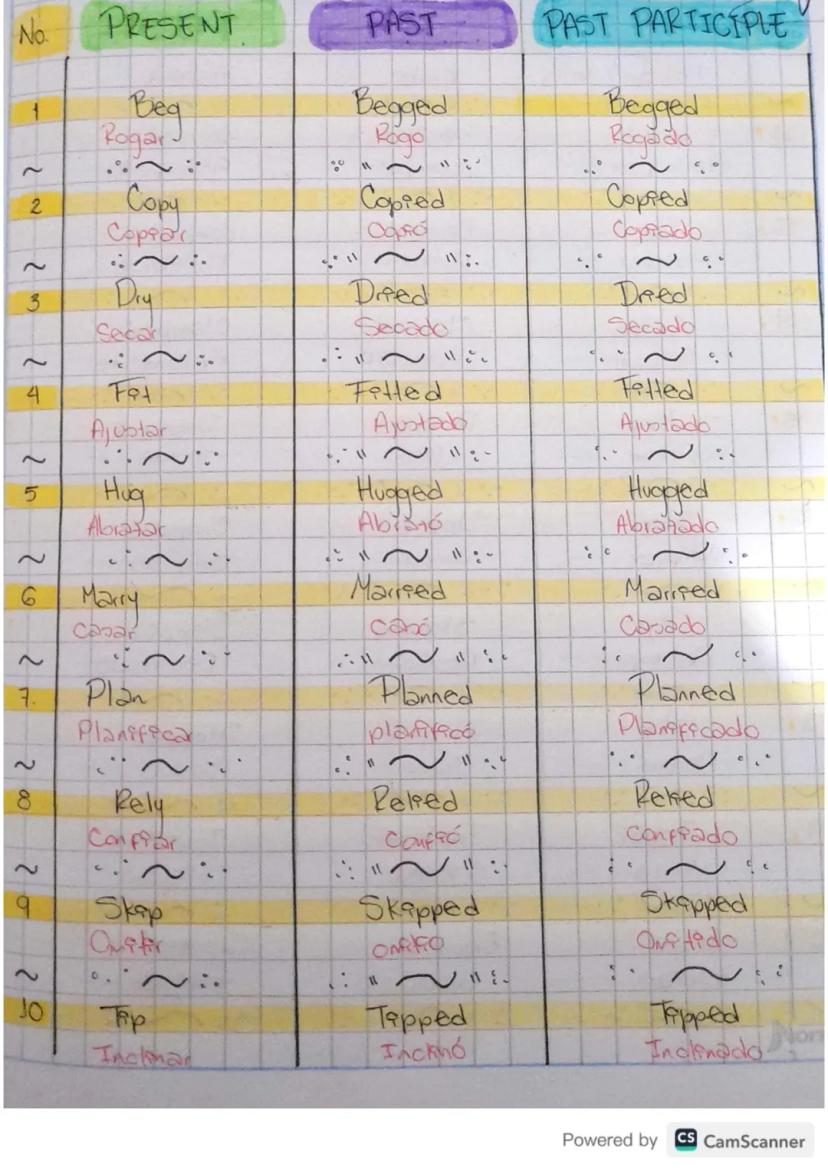 No. PRESENT PAST PAST PARTICIPLE
1 Beg Begged Begged
Rogar Rogo Rogado
~ ~ ~ ~
2 Copy Copied Copied
Copiar Copió Copiado
~ ~ ~ ~
3 Dry Dried Dried
Secar Secado Secado
~ ~ ~ ~
4 Fit Fitted Fitted
Ajustar Ajustado Ajustado
~ ~ ~ ~
5 Hug Hugged Hugged
Abrazar Abrazó Abrazado
~ ~ ~ ~
6 Marry Married Married
Casar Casó Casado
~ ~ ~ ~
7. Plan Planned Planned
Planificar planificó Planificado
~ ~ ~ ~
8 Rely Relied Relied
Confiar Confió Confiado
~ ~ ~ ~
9 Skip Skipped Skipped
Omitir Omitió Omitido
~ ~ ~ ~
10 Tip Tipped Tipped
Inclinar Inclinó Inclinado
Powered by CS CamScanner